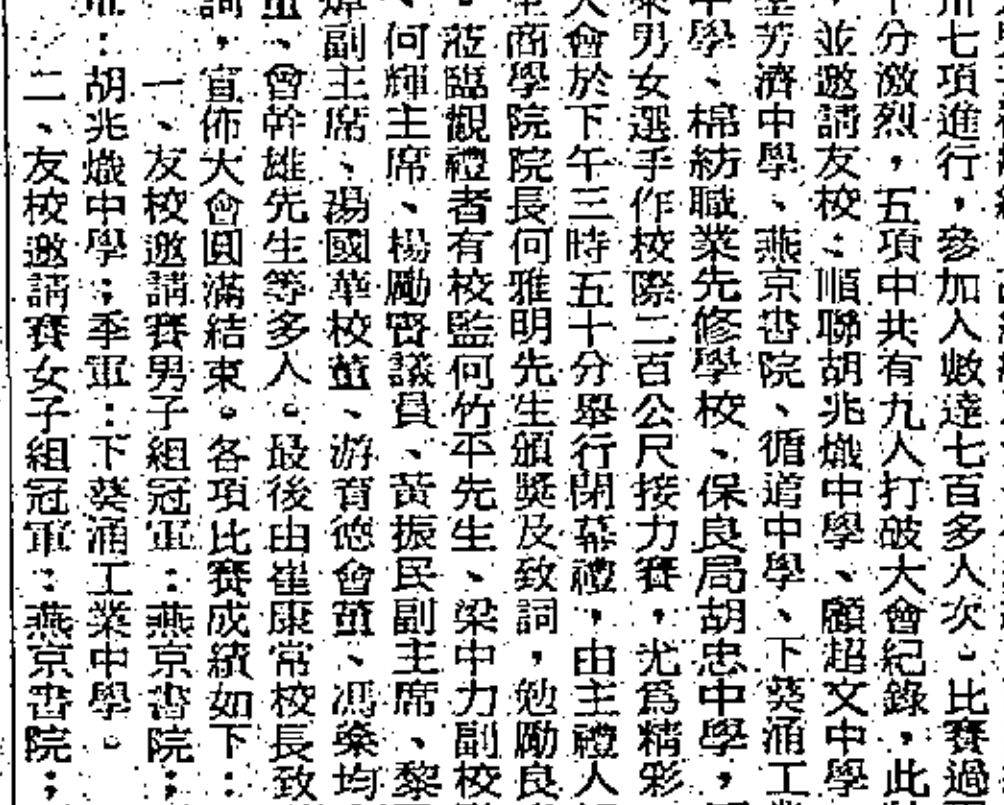 州七項進行，參加人數達七百多人次。比賽過
十分激烈，五項中共有九人打破大會紀錄，此
，並邀請友校：順聯胡兆熾中學、顧超文中學
芳濟中學、燕京書院、循道中學、下葵涌工
中學、棉紡職業先修學校、保良局胡忠中學，
男女選手作校際二百公尺接力賽，尤爲精彩
大會於下午三時五十分舉行閉幕禮，由主禮人
商學院院長何雅明先生頒獎及致詞，勉勵良
。蒞臨觀禮者有校監何竹平先生、梁中力副校
、何輝主席、楊勵賢議員、黃振民副主席、黎
副主席、湯國華校董、游育德會董、馮燊均
董、曾幹雄先生等多人。最後由崔康常校長致
詞，宣佈大會圓滿結束。各項比賽成績如下：
一、友校邀請賽男子組冠軍：燕京書院；
：胡兆熾中學；季軍：下葵涌工業中學。
二、友校邀請賽女子組冠軍：燕京書院；